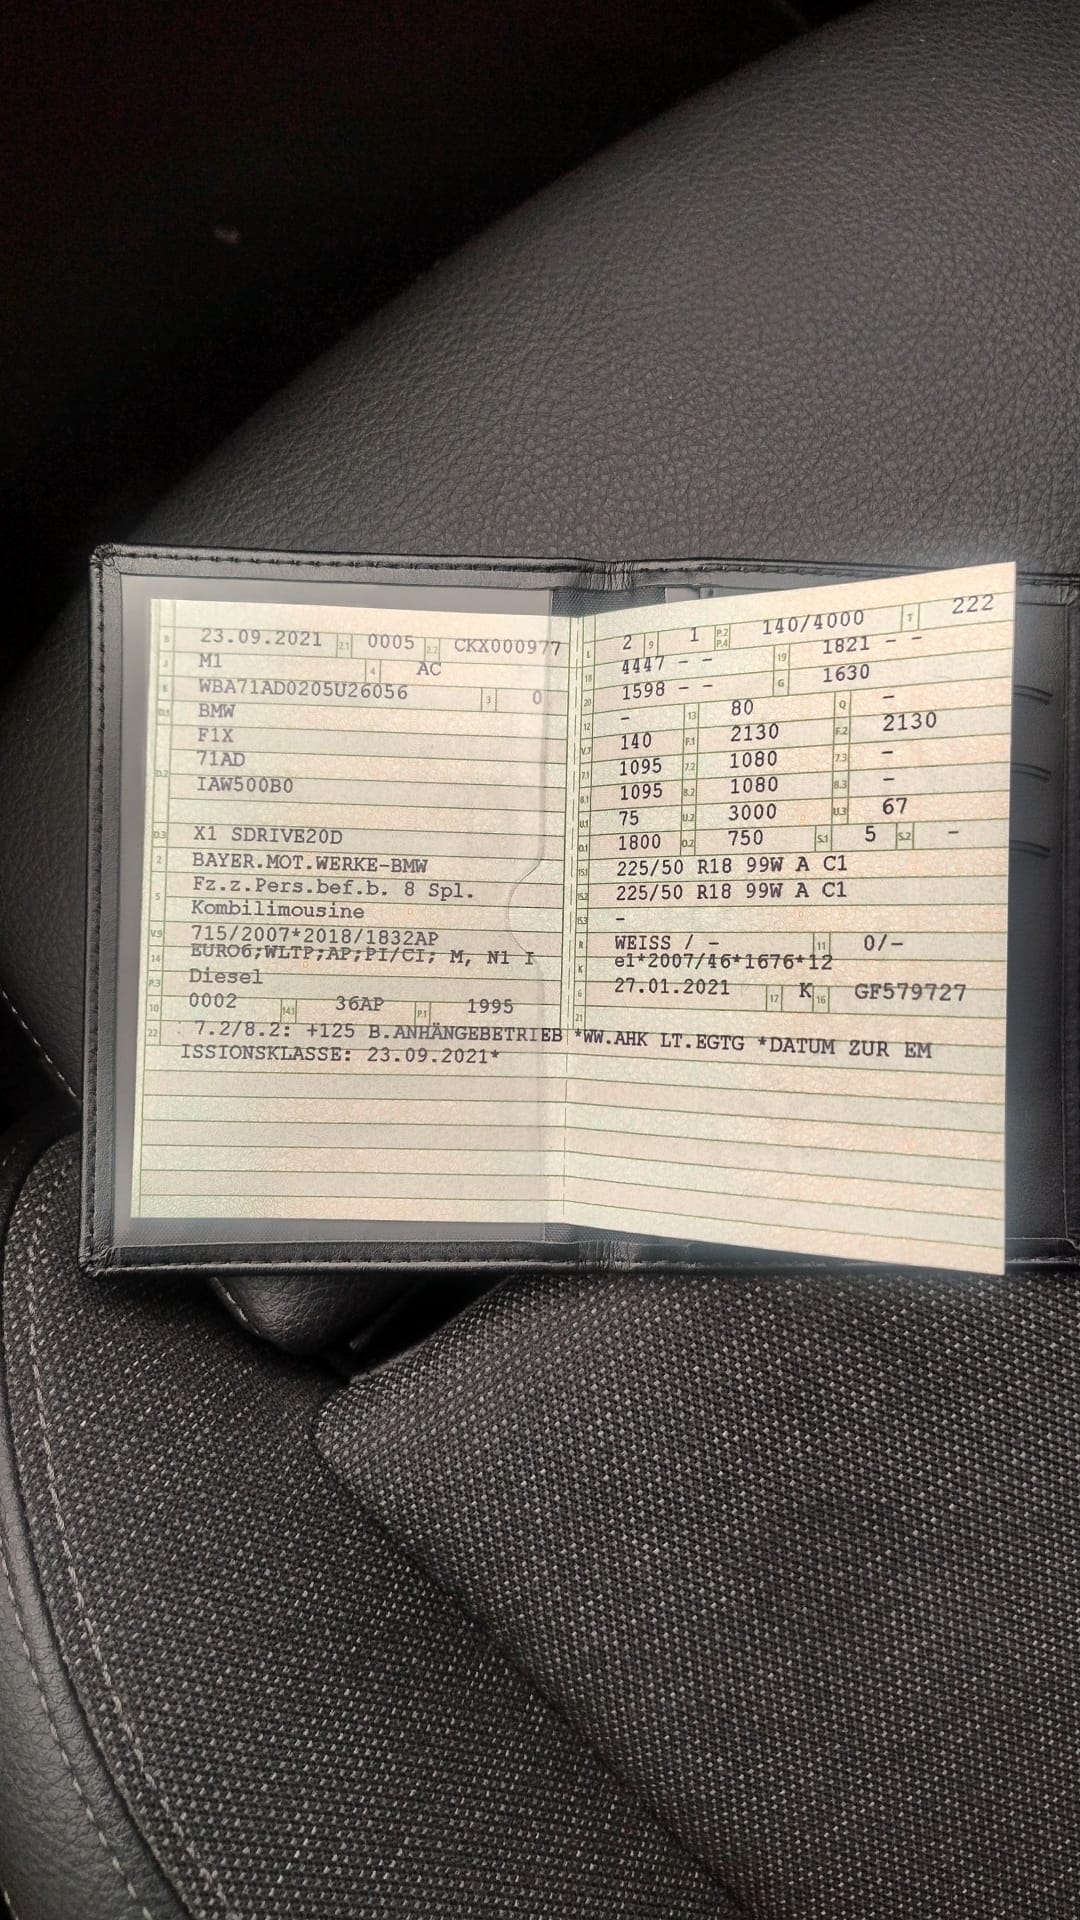 B 23.09.2021 2.1 0005 2.2 CKX000977
J M1 4 AC
E WBA71AD0205U26056 3 0
D.1 BMW
F1X
71AD
D.2 IAW500B0
D.3 X1 SDRIVE20D
2 BAYER.MOT.WERKE-BMW
5 Fz.z.Pers.bef.b. 8 Spl.
Kombilimousine
V.9 715/2007*2018/1832AP
14 EURO6;WLTP;AP;PI/CI; M, N1 I
P.3 Diesel
10 0002 14.1 36AP P.1 1995
L 2 9 1 P.2 P.4 140/4000 T 222
18 4447 - - 19 1821 - -
20 1598 - - G 1630
12 - 13 80 Q -
V.7 140 F.1 2130 F.2 2130
7.1 1095 7.2 1080 7.3 -
8.1 1095 8.2 1080 8.3 -
U.1 75 U.2 3000 U.3 67
O.1 1800 O.2 750 S.1 5 S.2 -
15.1 225/50 R18 99W A C1
15.2 225/50 R18 99W A C1
15.3 -
R WEISS / - 11 0/-
K e1*2007/46*1676*12
6 27.01.2021 17 K 16 GF579727
21
22 7.2/8.2: +125 B.ANHÄNGEBETRIEB *WW.AHK LT.EGTG *DATUM ZUR EM
ISSIONSKLASSE: 23.09.2021*